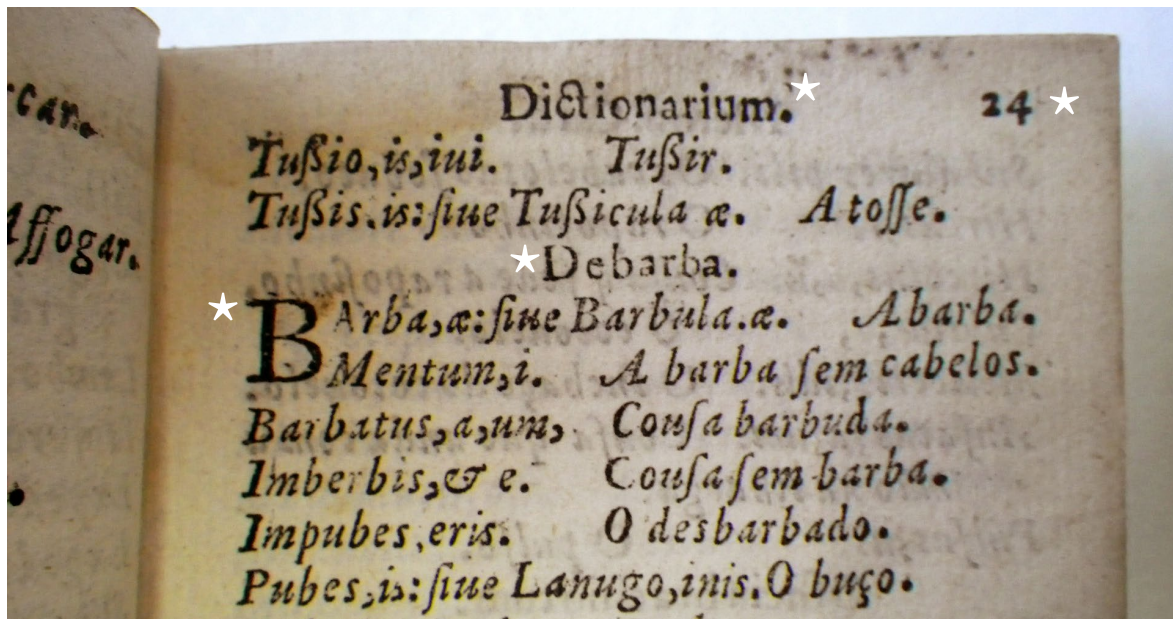 rcar.
Affogar.
Dictionarium. 24
Tußio,is,iui. Tußir.
Tußis.is:ſiue Tußicula æ. A toſſe.
Debarba.
BArba,æ:ſiue Barbula.æ. A barba.
Mentum,i. A barba ſem cabelos.
Barbatus,a,um, Couſa barbuda.
Imberbis,& e. Couſa ſem barba.
Impubes,eris. O desbarbado.
Pubes,is:ſiue Lanugo,inis.O buço.